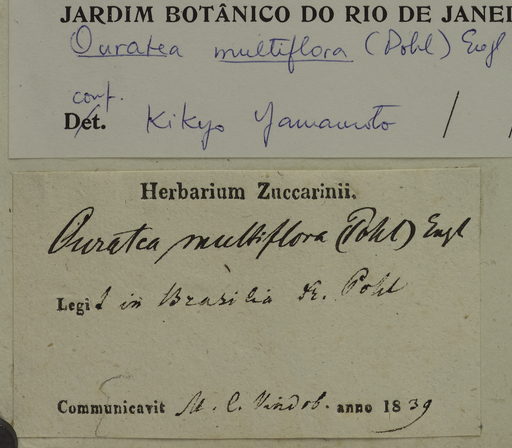 JARDIM BOTÂNICO DO RIO DE JANEI
Ouratea multiflora (Pohl) Engl
conf.
Det. Kikyo Yamamoto / /
Herbarium Zuccarinii.
Ouratea multiflora (Pohl) Engl
Legit in Brasilia Pohl
Communicavit M. C. Vindob. anno 1839